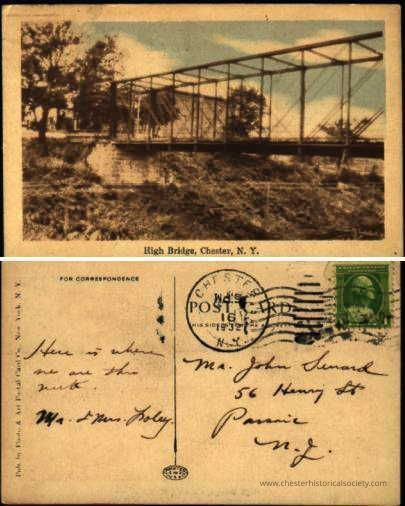 www.chesterhistoricalsociety.com
High Bridge, Chester, N. Y.
Pub. by Photo & Art Postal Card Co., New York, N. Y.
FOR CORRESPONDENCE
Here is where
we are this
week.
Mr. & Mrs. Foley.
CHESTER
16
1932
N.Y.
POST CARD
Mr. John
56 Henry St
Passaic
N. J.
www.chesterhistoricalsociety.com